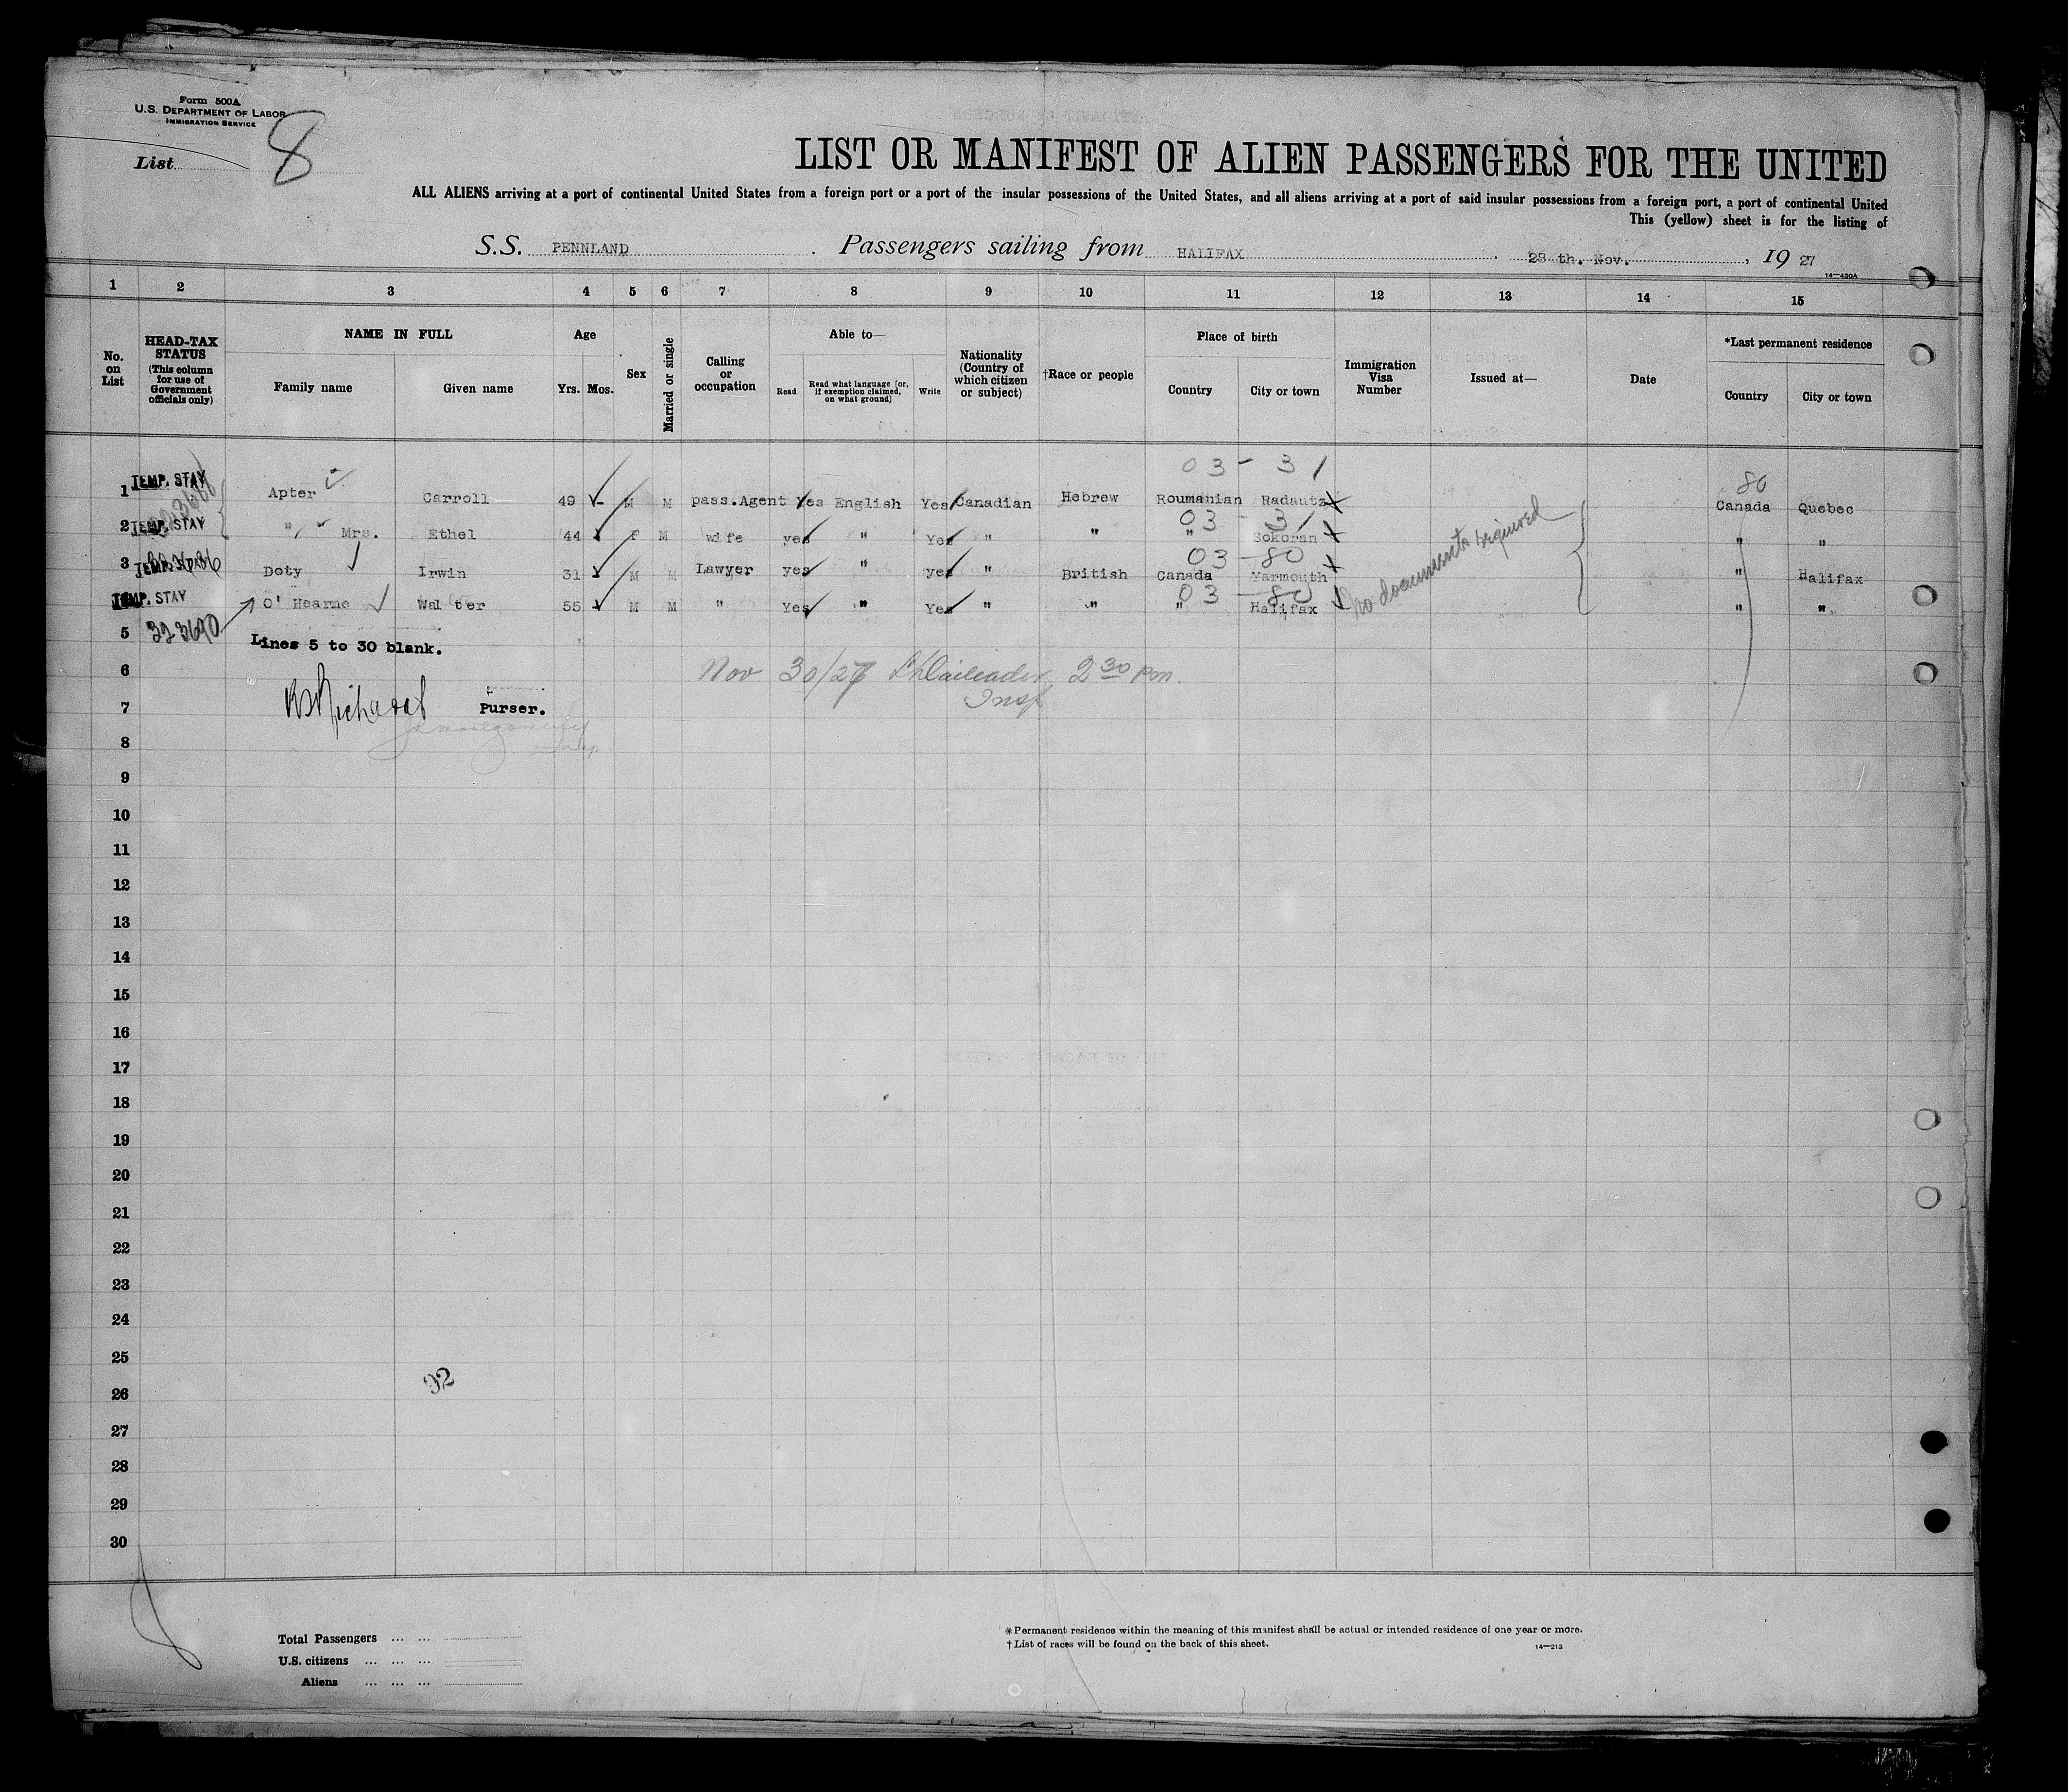 Form 500A
U.S. DEPARTMENT OF LABOR
IMMIGRATION SERVICE
List 8
LIST OR MANIFEST OF ALIEN PASSENGERS FOR THE UNITED
ALL ALIENS arriving at a port of continental United States from a foreign port or a port of the insular possessions of the United States, and all aliens arriving at a port of said insular possessions from a foreign port, a port of continental United
This (yellow) sheet is for the listing of
S.S. PENNLAND . Passengers sailing from HALIFAX . 28 th. Nov. , 19 27
14—430A
1 2 3 4 5 6 7 8 9 10 11 12 13 14 15
No. on List
HEAD-TAX STATUS (This column for use of Government officials only)
NAME IN FULL
Family name Given name
Age
Yrs. Mos.
Sex
Married or single
Calling or occupation
Able to—
Read
Read what language [or, if exemption claimed, on what ground]
Write
Nationality (Country of which citizen or subject)
†Race or people
Place of birth
Country City or town
Immigration Visa Number
Issued at—
Date
*Last permanent residence
Country City or town
03 - 31
80
1 TEMP. STAY Apter Carroll 49 - M M pass.Agent Yes English Yes Canadian Hebrew Roumanian Radautz Canada Quebec
03 - 31
2 TEMP. STAY " " Mrs. Ethel 44 F M wife yes " Yes " " " Sokoran " "
03 - 80
3 TEMP. STAY Doty Irwin 31 M M Lawyer yes " yes " British Canada Yarmouth " Halifax
03 - 80
TEMP. STAY O' Hearne Walter 55 M M " Yes " Yes " " " Halifax " "
no documents required
5 323690
Lines 5 to 30 blank.
6
Nov 30/27 2 30 pm.
Insp
7
Purser.
8
9
10
11
12
13
14
15
16
17
18
19
20
21
22
23
24
25
26
92
27
28
29
30
Total Passengers ... ...
U.S. citizens ... ... ...
Aliens ... ... ...
*Permanent residence within the meaning of this manifest shall be actual or intended residence of one year or more.
†List of races will be found on the back of this sheet.
14—213